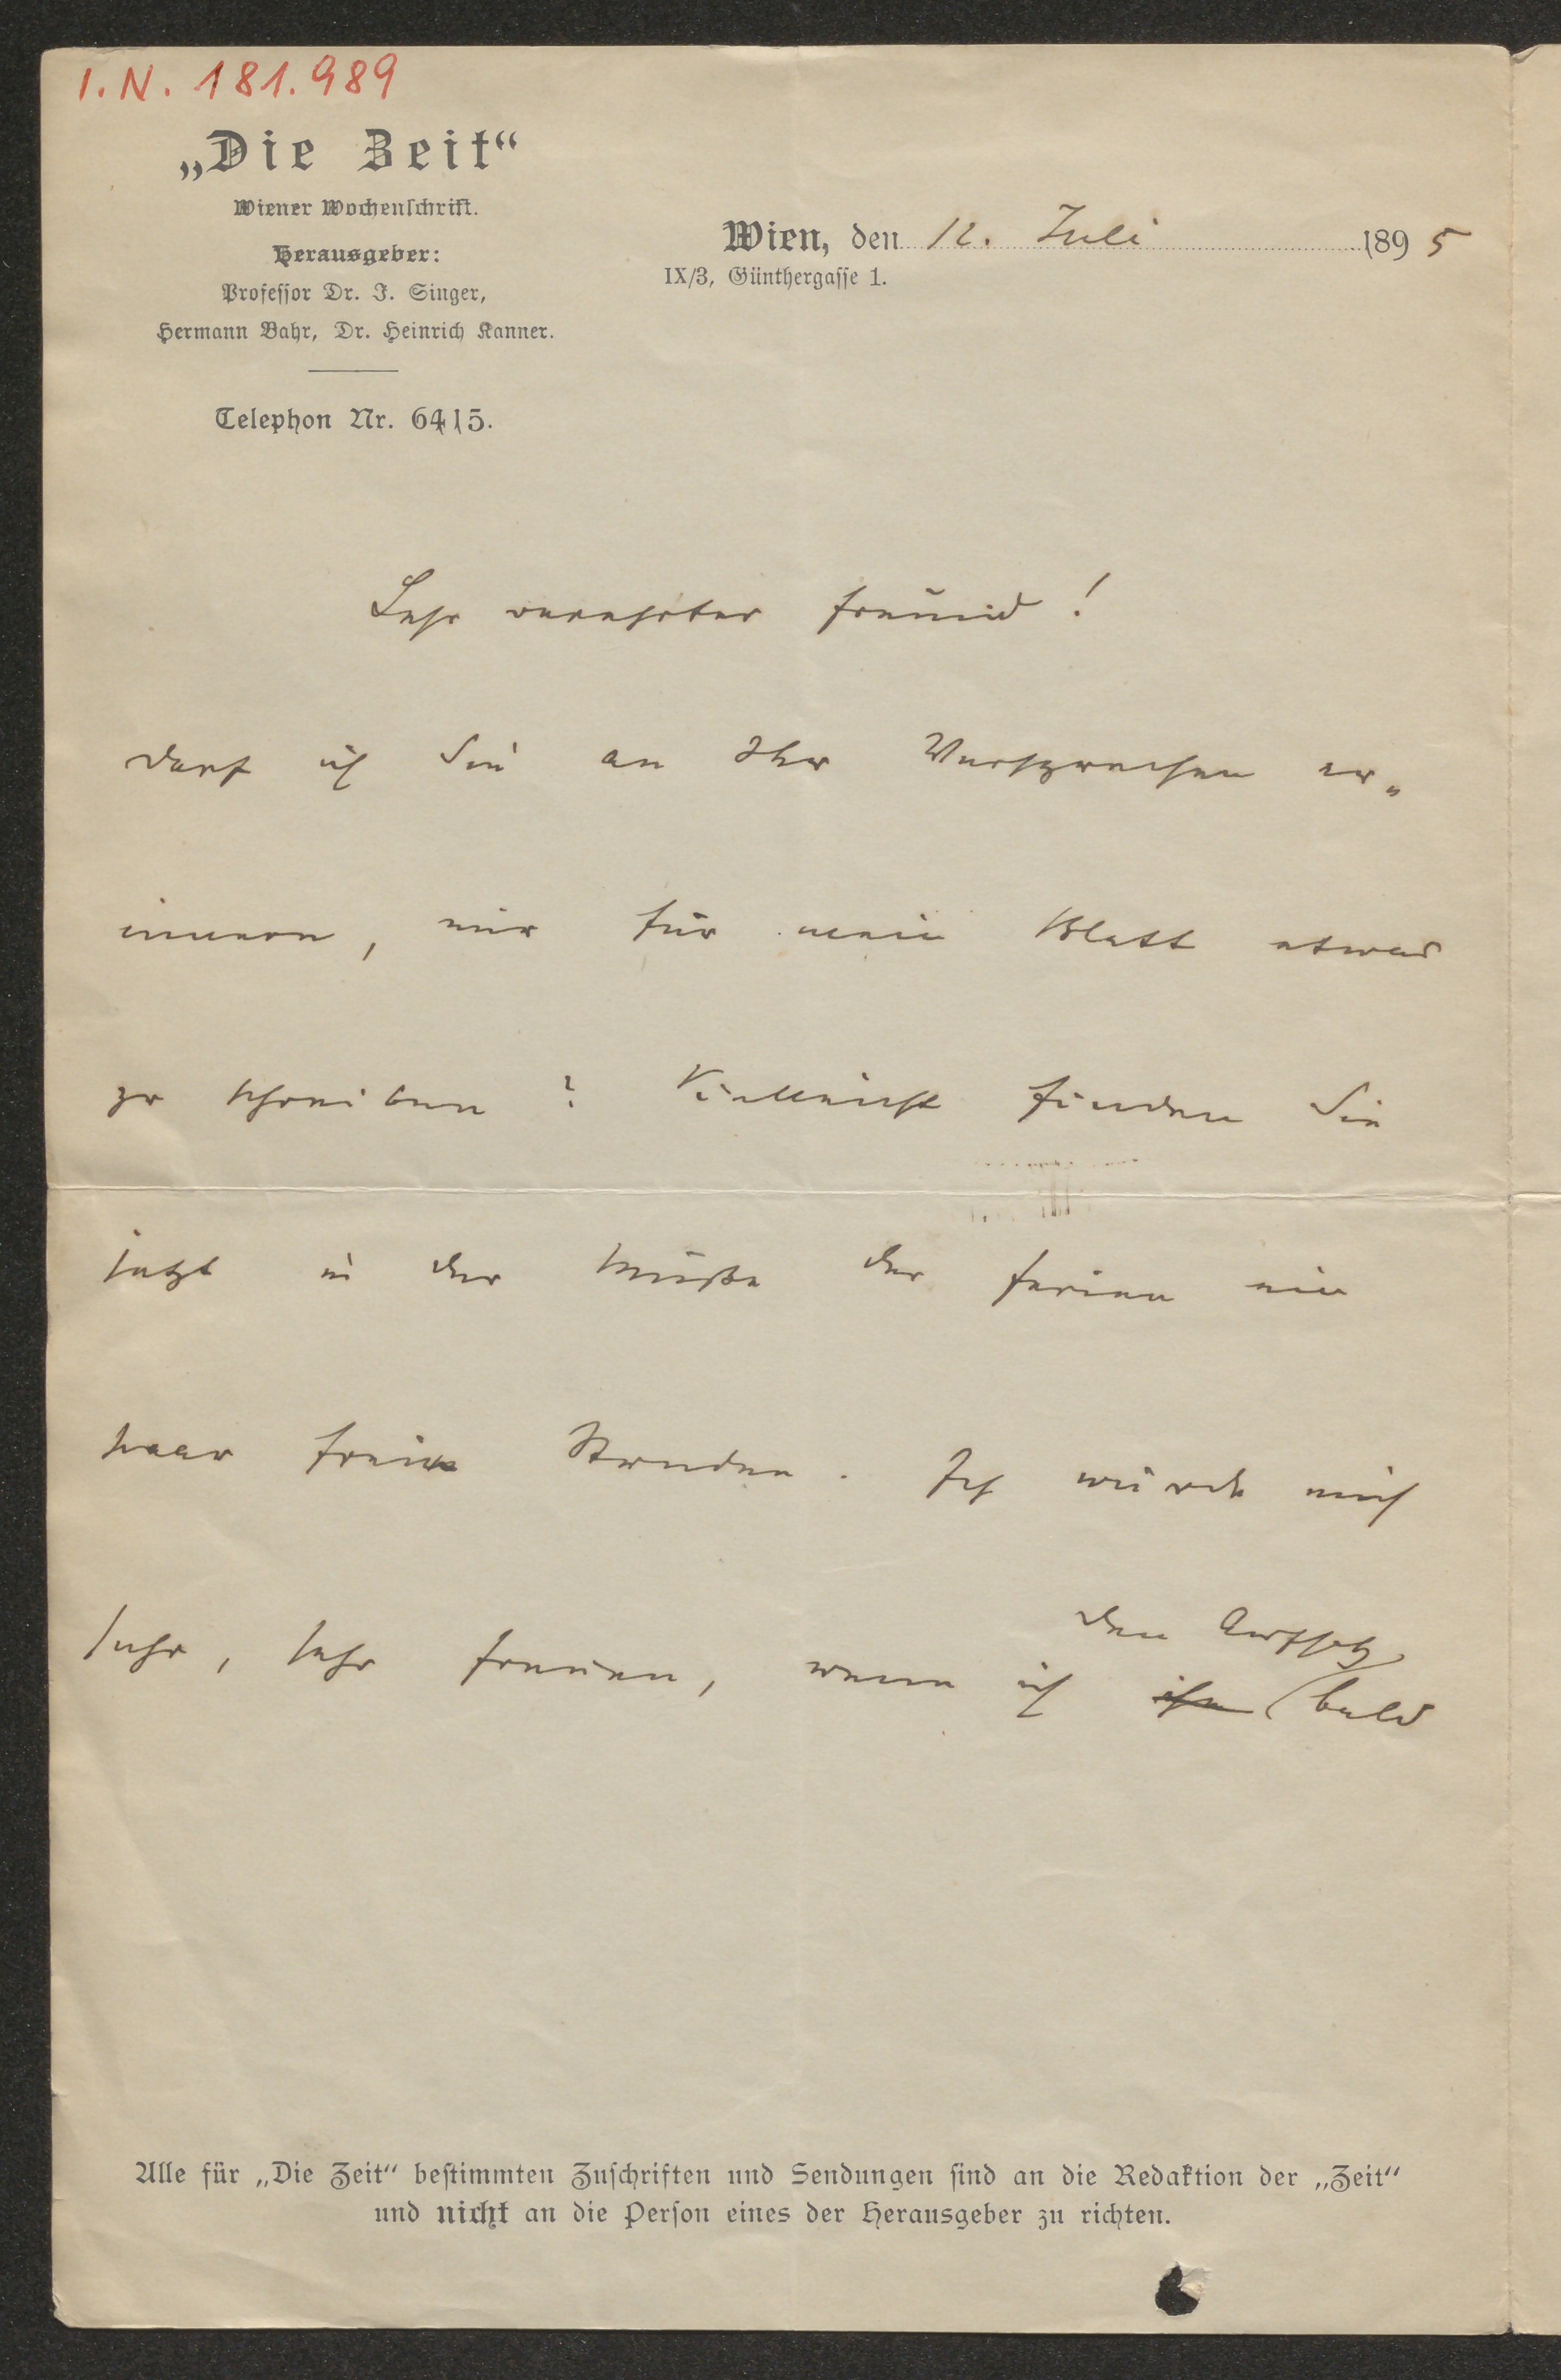 I.N. 181.989
„Die Zeit“
Wiener Wochenschrift.
Herausgeber:
Professor Dr. I. Singer,
Hermann Bahr, Dr. Heinrich Kanner.
Telephon Nr. 6415.
Wien, den 12. Juli 1895
IX/3, Günthergasse 1.
Sehr verehrter Freund!
darf ich Sie an Ihr Versprechen er„
innern, mir für mein Blatt etwas
zu schreiben? Vielleicht finden Sie
jetzt in der Muße der Ferien ein
paar freie Stunden. Ich würde mich
sehr, sehr freuen, wenn ich ihn den Aufsatz bald
Alle für „Die Zeit“ bestimmten Zuschriften und Sendungen sind an die Redaktion der „Zeit“
und nicht an die Person eines der Herausgeber zu richten.